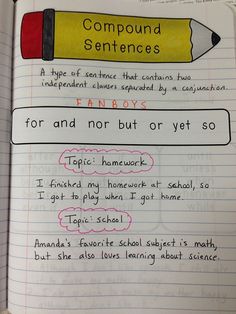 Compound
Sentences
A type of sentence that contains two
independent clauses separated by a conjunction.
FANBOYS
for and nor but or yet so
Topic: homework
I finished my homework at school, so
I got to play when I got home.
Topic: school
Amanda's favorite school subject is math,
but she also loves learning about science.